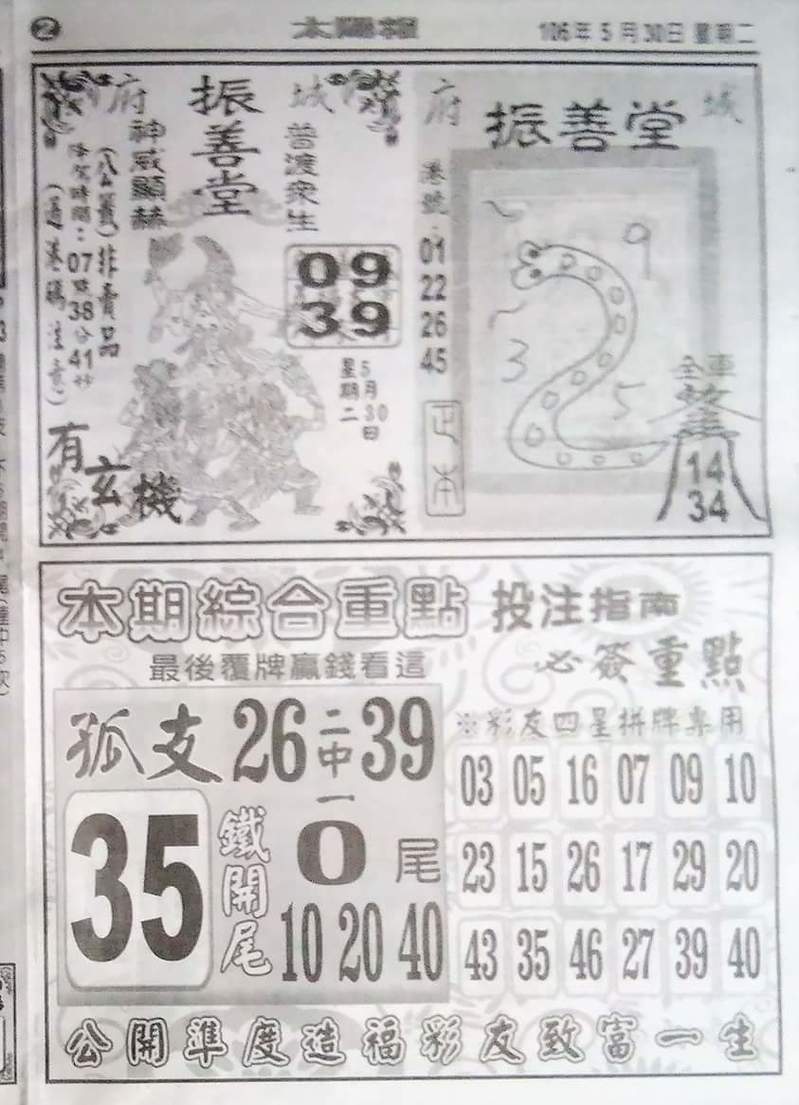 2 太陽報 106年5月30日 星期二
府城
振善堂
普渡眾生
神威顯赫
(八公籤)非賣品
降駕時間:07點38分41秒
09
39
5月30日
星期二
有玄機
府城
振善堂
港號:
01
22
26
45
正本
9
3
5
全車
14
34
本期綜合重點 投注指南
最後覆牌贏錢看這
必簽重點
孤支 26 二中一 39
35
鐵開尾
0尾
10 20 40
※彩友四星拼牌專用
03 05 16 07 09 10
23 15 26 17 29 20
43 35 46 27 39 40
公開準度造福彩友致富一生